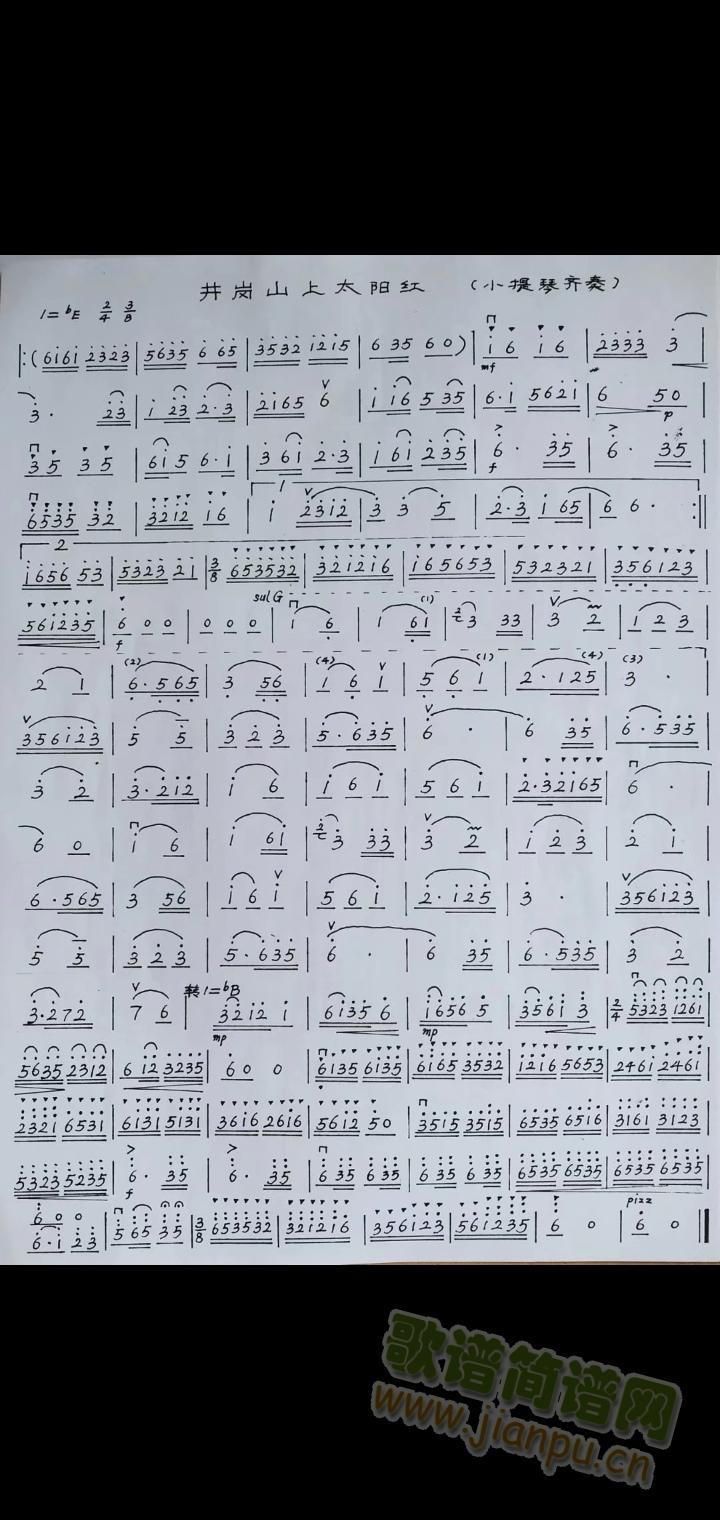 井岗山上太阳红 （小提琴齐奏）
1=ᵇE 2/4 3/8
|:( 6161 2323 | 5635 6 65 | 3532 1215 | 6 35 6 0 ) | 16 16 | 2333 3 |
mf
3 · 23 | 1 23 2·3 | 2165 6 | 1 16 5 35 | 6·1 5621 | 6 50 |
p
35 35 | 61 5 6·1 | 3 61 2·3 | 1 61 2 35 | 6 · 35 | 6 · 35 |
f
1
6535 32 | 3212 16 | 1 2312 | 3 3 5 | 2·3 1 65 | 6 6 · :||
2
1656 53 | 5323 21 | 3/8 653532 | 321216 | 165653 | 532321 | 356123 |
sul G
561235 | 6 0 0 | 0 0 0 | 1 6 | 1 61 | 3 33 | 3 2 | 1 2 3 |
f (1)
(2) (4) (1) (4) (3)
2 1 | 6·565 | 3 56 | 1 6 1 | 5 6 1 | 2·125 | 3 · |
356123 | 5 5 | 3 2 3 | 5·635 | 6 · | 6 35 | 6·535 |
3 2 | 3·212 | 1 6 | 1 6 1 | 5 6 1 | 2·32165 | 6 · |
6 0 | 1 6 | 1 61 | 3 33 | 3 2 | 1 2 3 | 2 1 |
6·565 | 3 56 | 1 6 1 | 5 6 1 | 2·125 | 3 · | 356123 |
5 5 | 3 2 3 | 5·635 | 6 · | 6 35 | 6·535 | 3 2 |
转1=ᵇB
3·272 | 7 6 | 3212 1 | 6135 6 | 1656 5 | 3561 3 | 2/4 5323 1261 |
mp mp
5635 2312 | 6 12 3235 | 6 0 0 | 6135 6135 | 6165 3532 | 1216 5653 | 2461 2461 |
2321 6531 | 6131 5131 | 3616 2616 | 5612 50 | 3515 3515 | 6535 6516 | 3161 3123 |
5323 5235 | 6 · 35 | 6 · 35 | 6 35 6 35 | 6 35 6 35 | 6535 6535 | 6535 6535 |
f
pizz
6 0 0
6·1 23 | 5 65 35 | 3/8 653532 | 321216 | 356123 | 561235 | 6 0 | 6 0 ||
歌谱简谱网
www.jianpu.cn